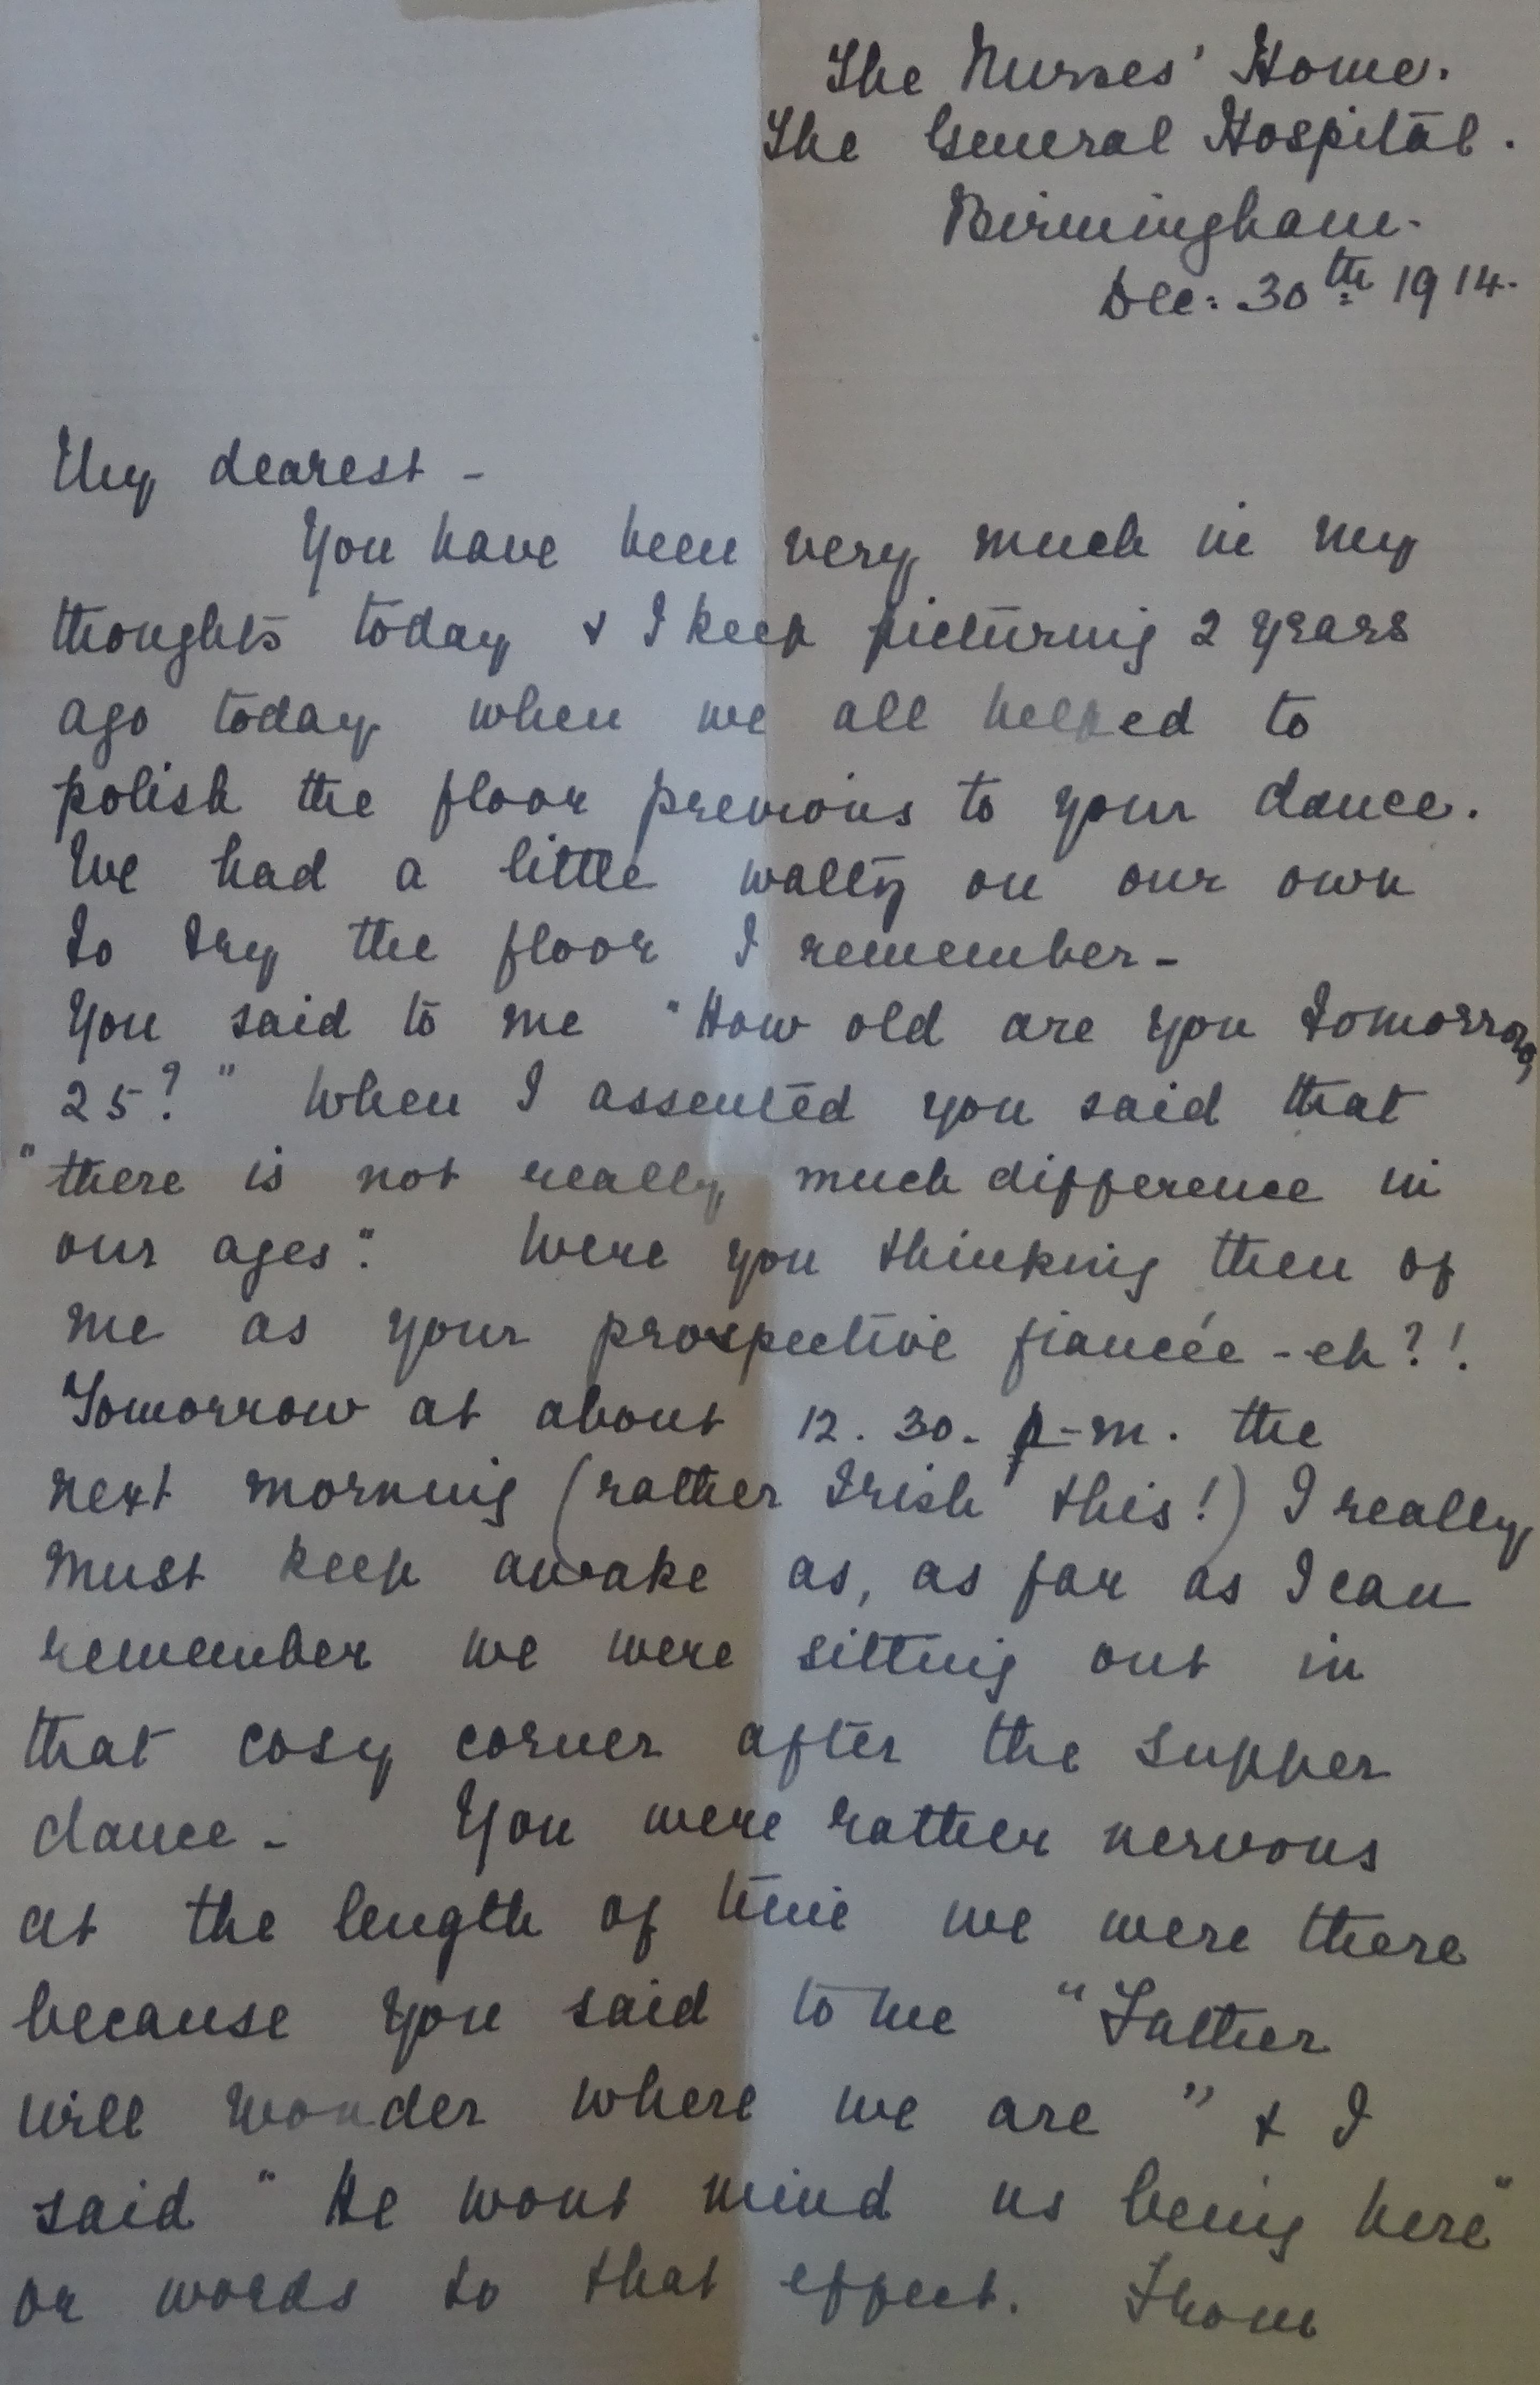 The Nurses' Home.
The General Hospital.
Birmingham.
Dec: 30th 1914.
My dearest -
You have been very much in my
thoughts today & I keep picturing 2 years
ago today when we all helped to
polish the floor previous to your dance.
We had a little waltz on our own
to try the floor I remember -
You said to me "How old are you tomorrow,
25?" When I assented you said that
"there is not really much difference in
our ages". Were you thinking then of
me as your prospective fiancée - eh?!
Tomorrow at about 12.30. p-m. the
next morning (rather Irish this!) I really
must keep awake as, as far as I can
remember we were sitting out in
that cosy corner after the supper
dance - You were rather nervous
at the length of time we were there
because you said to me "Father
will wonder where we are" & I
said "He wont mind us being here"
or words to that effect.